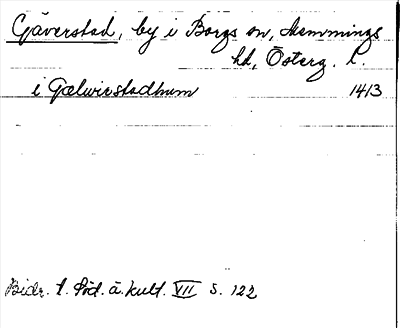 Gäverstad, by i Borgs sn, Memmings
hd, Österg. l.
i Gælwirstadhum 1413
Bidr. t. Söd. ä. kult. VII s. 122